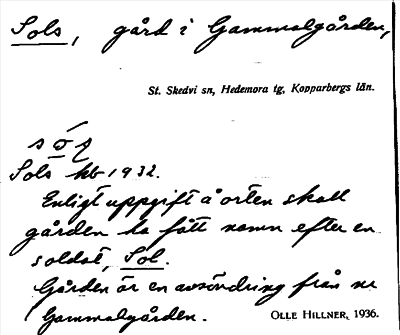 Sols, gård i Gammalgården,
St. Skedvi sn, Hedemora tg, Kopparbergs län.
Sols kb 1932.
Enligt uppgift å orten skall
gården ha fått namn efter en
soldat, Sol.
Gården är en avsöndring från nr
Gammalgården. OLLE HILLNER, 1936.